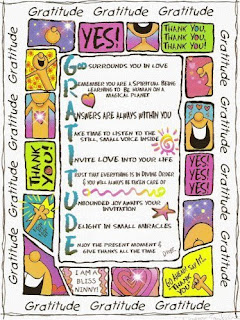 Gratitude Gratitude Gratitude
YES!
THANK YOU,
THANK YOU,
THANK YOU!
GOD SURROUNDS YOU IN LOVE
REMEMBER YOU ARE A SPIRITUAL BEING
LEARNING TO BE HUMAN ON A
MAGICAL PLANET
ANSWERS ARE ALWAYS WITHIN YOU
TAKE TIME TO LISTEN TO THE
STILL, SMALL VOICE INSIDE
INVITE LOVE INTO YOUR LIFE
TRUST THAT EVERYTHING IS IN DIVINE ORDER
& YOU WILL ALWAYS BE TAKEN CARE OF
UNBOUNDED JOY AWAITS YOUR
INVITATION
DELIGHT IN SMALL MIRACLES
ENJOY THE PRESENT MOMENT &
GIVE THANKS ALL THE TIME
THANK
YOU!
YES!
YES!
YES!
I AM A
BLISS
NINNY!
Gratitude Gratitude Gratitude
Gratitude Gratitude Gratitude Gratitude
Gratitude Gratitude Gratitude Gratitude